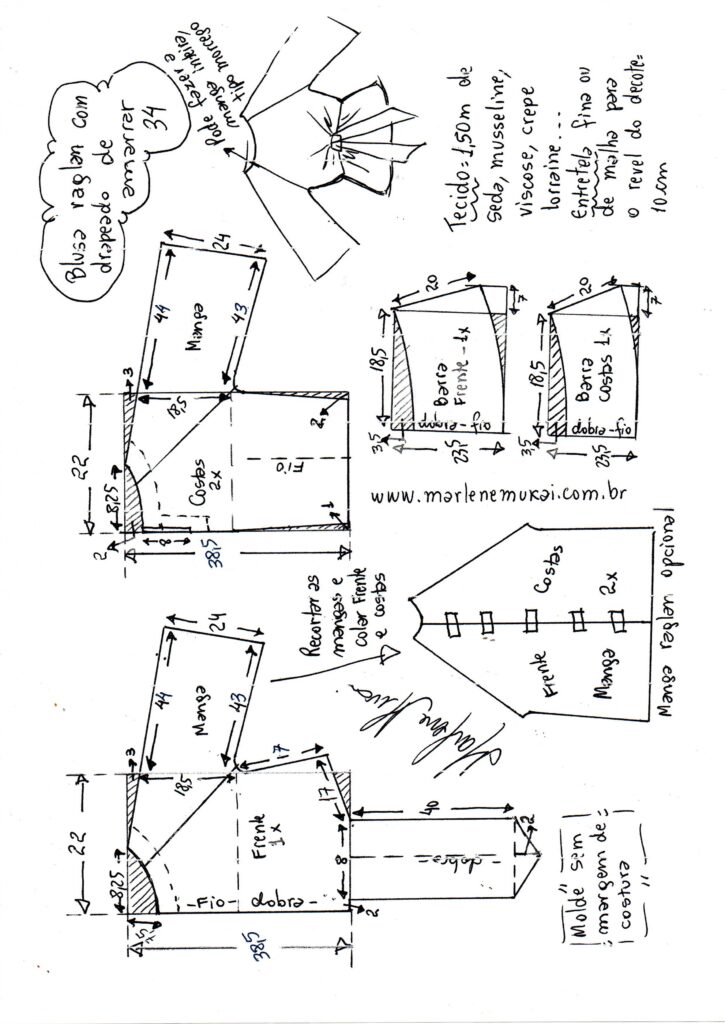 Blusa raglan com
drapeado de
amarrar
34
Pode fazer a
manga inteira,
tipo morcego
Tecido=1,50m de
seda, musseline,
viscose, crepe
lorraine...
Entretela fina ou
de malha para
o revel do decote=
10cm
22
8,25
3
2
8
18,5
38,5
1
2
44
43
24
Manga
Costas
2x
Fio
20
18,5
3,5
23,5
7
Barra
Frente-1x
dobra-fio
20
18,5
3,5
23,5
7
Barra
Costas 1x
dobra-fio
www.marlenemukai.com.br
22
8,25
3
18,5
38,5
44
43
24
Manga
17
17
8
2
40
2
Frente
1x
-Fio- dobra-
-dobra-
Recortar as
mangas e
colar Frente
e costas
Frente
Costas
Manga
2x
Manga raglan opcional
Molde sem
margem de
costura